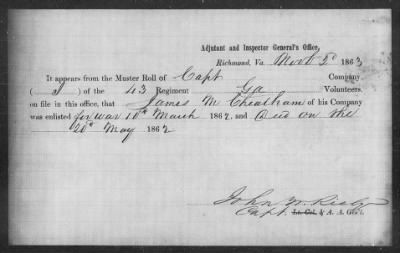 Adjutant and Inspector General's Office,
Richmond, Va. Novb 2d 1863
It appears from the Muster Roll of Capt Company,
( I ) of the 43 Regiment Ga Volunteers.
on file in this office, that James M Cheatham of his Company
was enlisted for war 10th March 1862, and Died on the
20th May 1862
John W.
Capt. Lt. Col. & A. A. Gen'l.